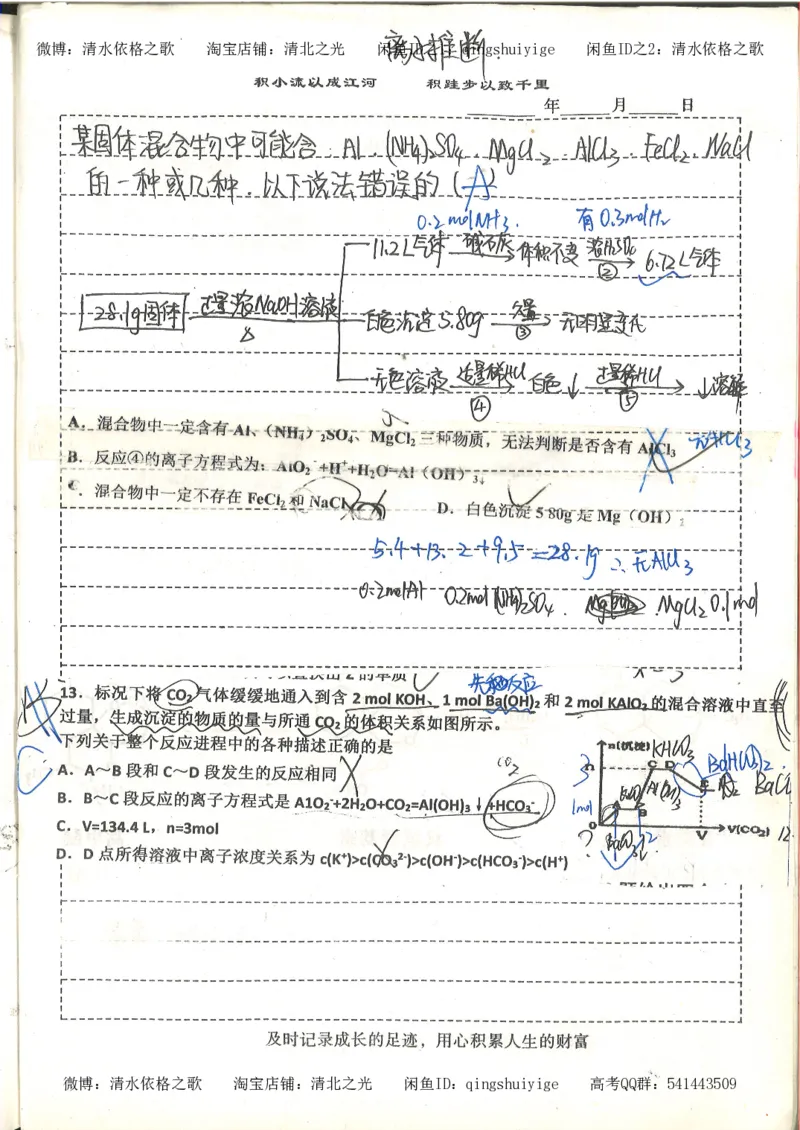 微博：清水依格之歌 淘宝店铺：清北之光 闲鱼ID：qingshuiyige 闲鱼ID之2：清水依格之歌
离子推断.
积小流以成江河 积跬步以致千里
年 月 日
某固体混合物中可能含 Al、(NH4)2SO4、MgCl2、AlCl3、FeCl2、NaCl
的一种或几种，以下说法错误的（A）
0.2molNH3. 有0.3molH2
11.2L气体 碱石灰 体积不变 浓H2SO4 ② 6.72L气体
28.1g固体 过量浓NaOH溶液 △ 白色沉淀5.80g 久置 ③ 无明显变化
无色溶液 适量稀HCl ④ 白色↓ 过量稀HCl ⑤ ↓溶解
A．混合物中一定含有 Al、（NH4）2SO4、MgCl2 三种物质，无法判断是否含有 AlCl3 无AlCl3
B．反应④的离子方程式为：AlO2-+H++H2O=Al（OH）3↓
．混合物中一定不存在 FeCl2 和 NaCl D．白色沉淀 5 80g 是 Mg（OH）2
5.4+13.2+9.5=28.1g ∴无AlCl3
0.2molAl 0.2mol(NH4)2SO4. MgCl2 0.1mol
13．标况下将 CO2 气体缓缓地通入到含 2 mol KOH、1 mol Ba(OH)2 和 2 mol KAlO2 的混合溶液中直至
过量，生成沉淀的物质的量与所通 CO2 的体积关系如图所示。
下列关于整个反应进程中的各种描述正确的是
A．A～B 段和 C～D 段发生的反应相同
B．B～C 段反应的离子方程式是 A1O2-+2H2O+CO2=Al(OH)3↓+HCO3-
C．V=134.4 L，n=3mol
D．D 点所得溶液中离子浓度关系为 c(K+)>c(CO32-)>c(OH-)>c(HCO3-)>c(H+)
CO2
n(沉淀) KHCO3
C D
3
1mol
V V(CO2)
及时记录成长的足迹，用心积累人生的财富
微博：清水依格之歌 淘宝店铺：清北之光 闲鱼ID：qingshuiyige 高考QQ群：541443509